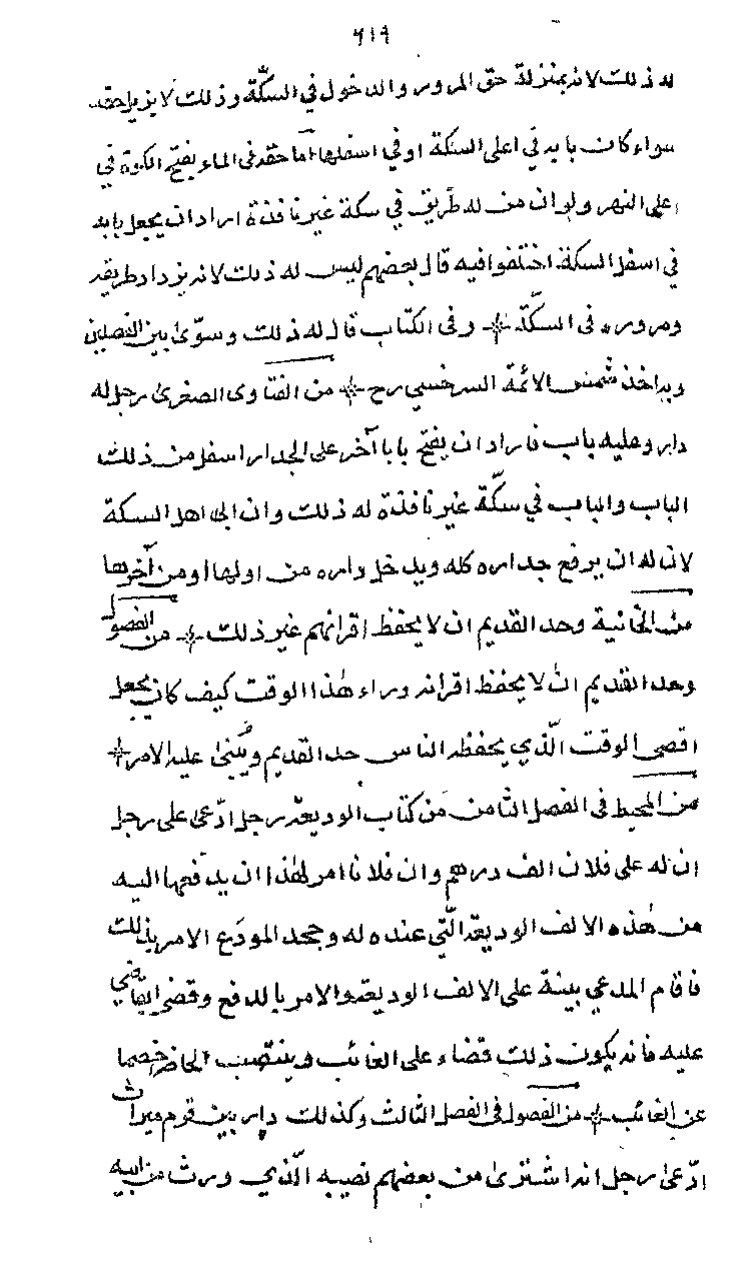 ٦١٩
له ذلك لانه بمنزلة حق المرور والدخول في السكّة وذلك لا يزيد احقه
سواء كان بابه في اعلى السكة او في اسفلها اما حقه فى الماء بفتح الكوة في
اعلى النهر ولو ان من له طريق في سكة غير نافذة اراد ان يجعل بابه
في اسفل السكة اختلفوا فيه قال بعضهم ليس له ذلك لانه يزداد طريقه
ومروره فى السكّة وفى الكتاب قال له ذلك وسوّى بين الفصلين
وبه اخذ شمس الائمة السرخسي رح من الفتاوى الصغرى رجل له
دار وعليه باب فاراد ان يفتح بابا آخر على الجدار اسفل من ذلك
الباب والباب في سكّة غير نافذة له ذلك وان ابى اهل السكة
لان له ان يرفع جداره كله ويدخل داره من اولها او من آخرها
من الخانية وحد القديم ان لا يحفظ اقرانهم غير ذلك من الفصول
وحد القديم ان لا يحفظ اقرانه وراء هذا الوقت كيف كان يجعل
اقصى الوقت الّذي يحفظه الناس حد القديم ويُبنى عليه الامر
من المحيط فى الفصل الثامن من كتاب الوديعة رجل ادّعى على رجل
ان له على فلان الف درهم وان فلانا امر لهذا ان يدفعها اليه
من هذه الالف الوديعة الّتي عنده له وجحد المودَع الامر بذلك
فاقام المدعي بينة على الالف الوديعة والامر بالدفع وقضى القاضي
عليه فانه يكون ذلك قضاء على الغائب وينتصب الحاضر خصما
عن الغائب من الفصول فى الفصل الثالث وكذلك دار بين قوم ميراث
ادّعى رجل انه اشترى من بعضهم نصيبه الّذي ورث من ابيه